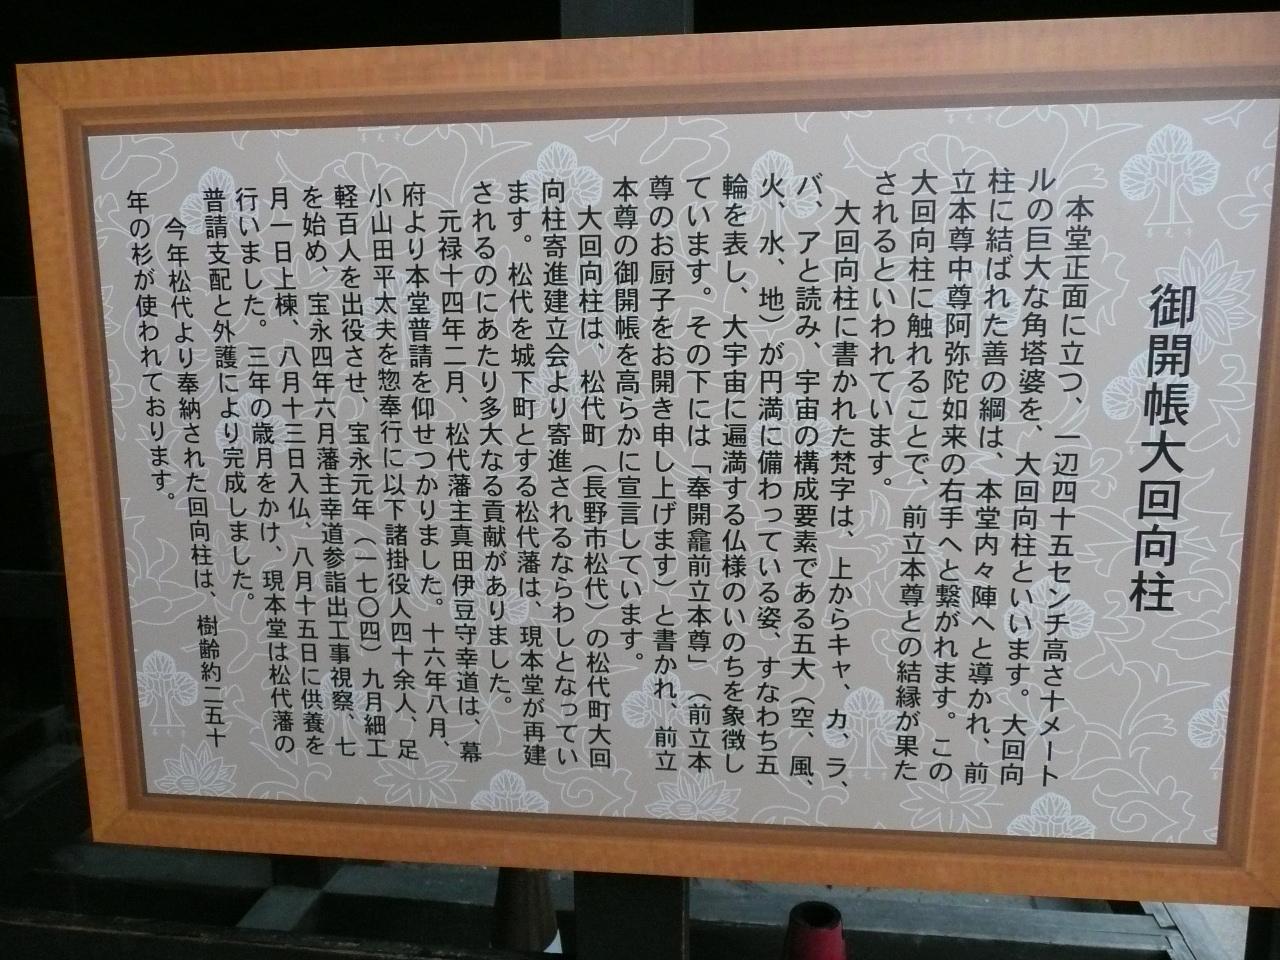 御開帳大回向柱
本堂正面に立つ、一辺四十五センチ高さ十メート
ルの巨大な角塔婆を、大回向柱といいます。大回向
柱に結ばれた善の綱は、本堂内々陣へと導かれ、前
立本尊中尊阿弥陀如来の右手へと繋がれます。この
大回向柱に触れることで、前立本尊との結縁が果た
されるといわれています。
大回向柱に書かれた梵字は、上からキャ、カ、ラ、
バ、アと読み、宇宙の構成要素である五大（空、風、
火、水、地）が円満に備わっている姿、すなわち五
輪を表し、大宇宙に遍満する仏様のいのちを象徴し
ています。その下には「奉開龕前立本尊」（前立本
尊のお厨子をお開き申し上げます）と書かれ、前立
本尊の御開帳を高らかに宣言しています。
大回向柱は、松代町（長野市松代）の松代町大回
向柱寄進建立会より寄進されるならわしとなってい
ます。松代を城下町とする松代藩は、現本堂が再建
されるのにあたり多大なる貢献がありました。
元禄十四年二月、松代藩主真田伊豆守幸道は、幕
府より本堂普請を仰せつかりました。十六年八月、
小山田平太夫を惣奉行に以下諸掛役人四十余人、足
軽百人を出役させ、宝永元年（一七〇四）九月細工
を始め、宝永四年六月藩主幸道参詣出工事視察、七
月一日上棟、八月十三日入仏、八月十五日に供養を
行いました。三年の歳月をかけ、現本堂は松代藩の
普請支配と外護により完成しました。
今年松代より奉納された回向柱は、樹齢約二五十
年の杉が使われております。